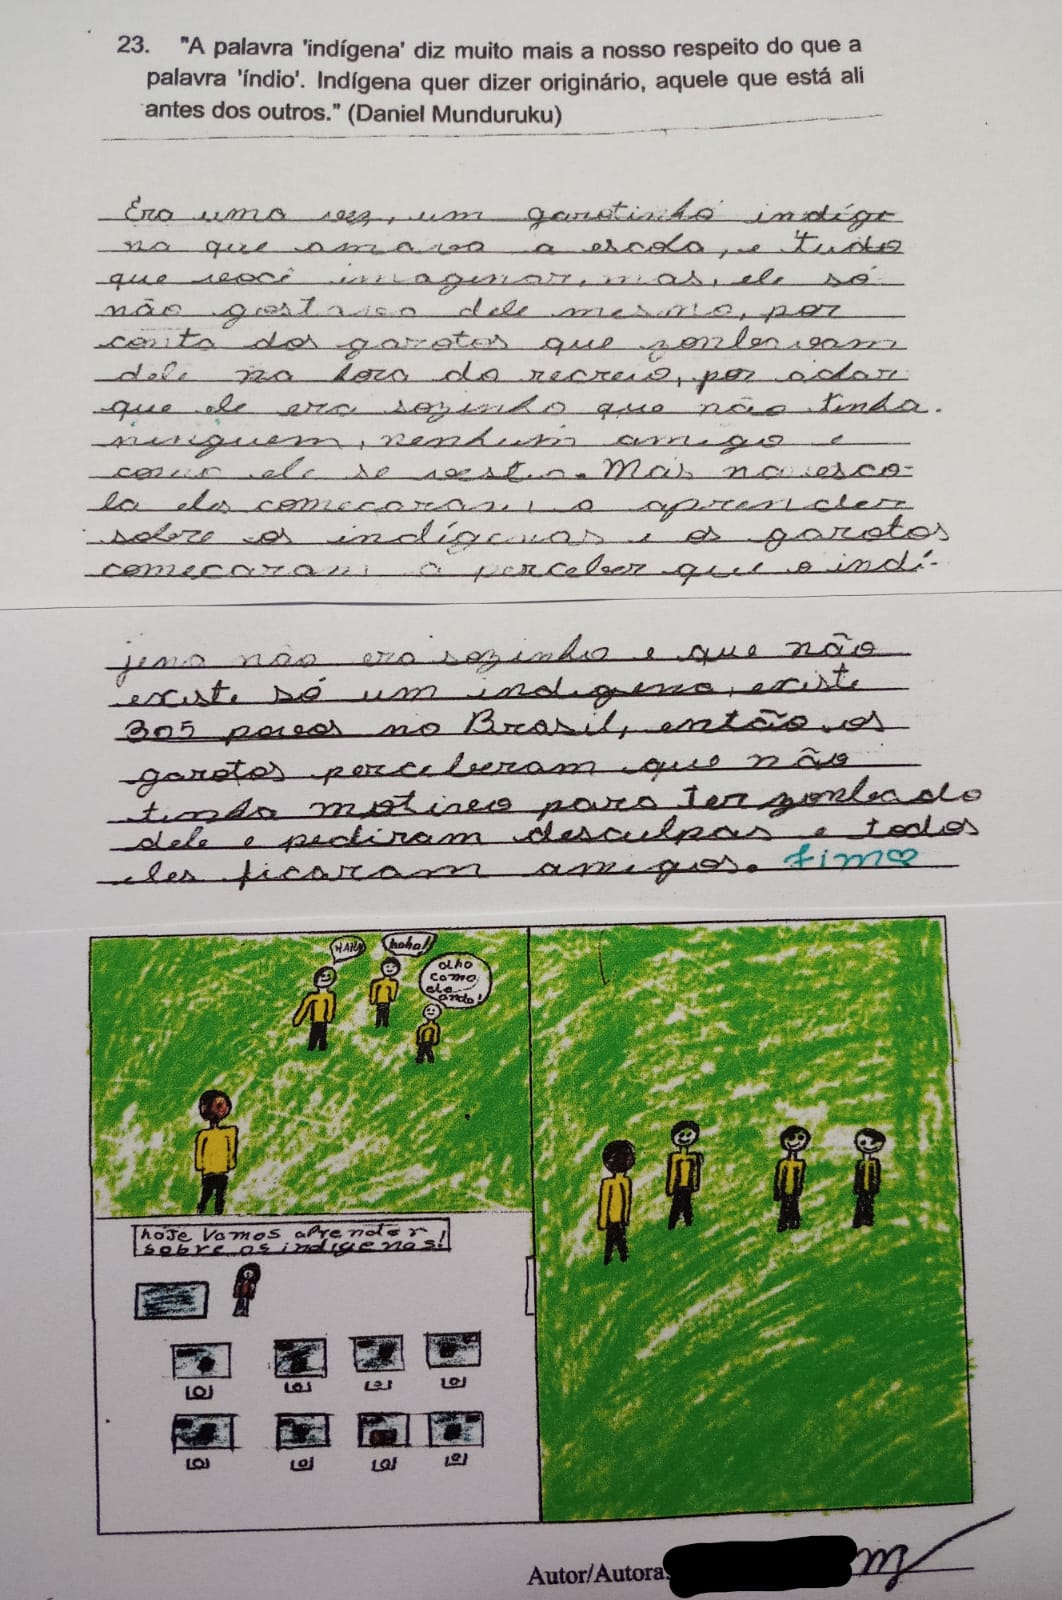 23. "A palavra 'indígena' diz muito mais a nosso respeito do que a
palavra 'índio'. Indígena quer dizer originário, aquele que está ali
antes dos outros." (Daniel Munduruku)
Era uma vez, um garotinho indíge
na que amava a escola, e tudo
que você imaginar, mas, ele só
não gostava dele mesmo, por
conta dos garotos que zombavam
dele na hora do recreio, por achar
que ele era sozinho que não tinha
ninguem, nenhum amigo e
como ele se vestia. Mas na esco-
la eles começaram a aprender
sobre os indígenas e os garotos
começaram a perceber que o indí-
jena não era sozinho e que não
existe só um indigena, existe
305 povos no Brasil, então os
garotos perceberam que não
tinha motivo para ter zombado
dele e pediram desculpas e todos
eles ficaram amigos. fim♡
HAHA
haha!
olha
como
ele
anda!
hoje vamos aprender
sobre os indigenas!
Autor/Autora: